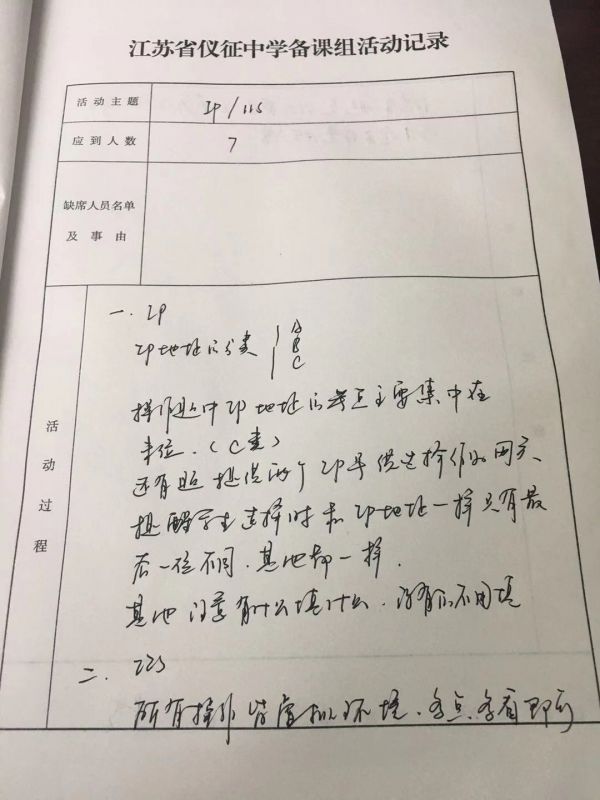 江苏省仪征中学备课组活动记录
活动主题
IP/IIS
应到人数
7
缺席人员名单
及事由
活动过程
一. IP
IP地址的分类 A
B
C
操作题中IP地址的考点主要集中在
末位.(C类)
还有题提供两个IP号供选择作为网关、
提醒学生选择时和IP地址一样只有最
后一位不同.其他都一样.
其他 有什么填什么.没有的不用填
二. IIS
所有操作皆虚拟环境.多点.多看即可